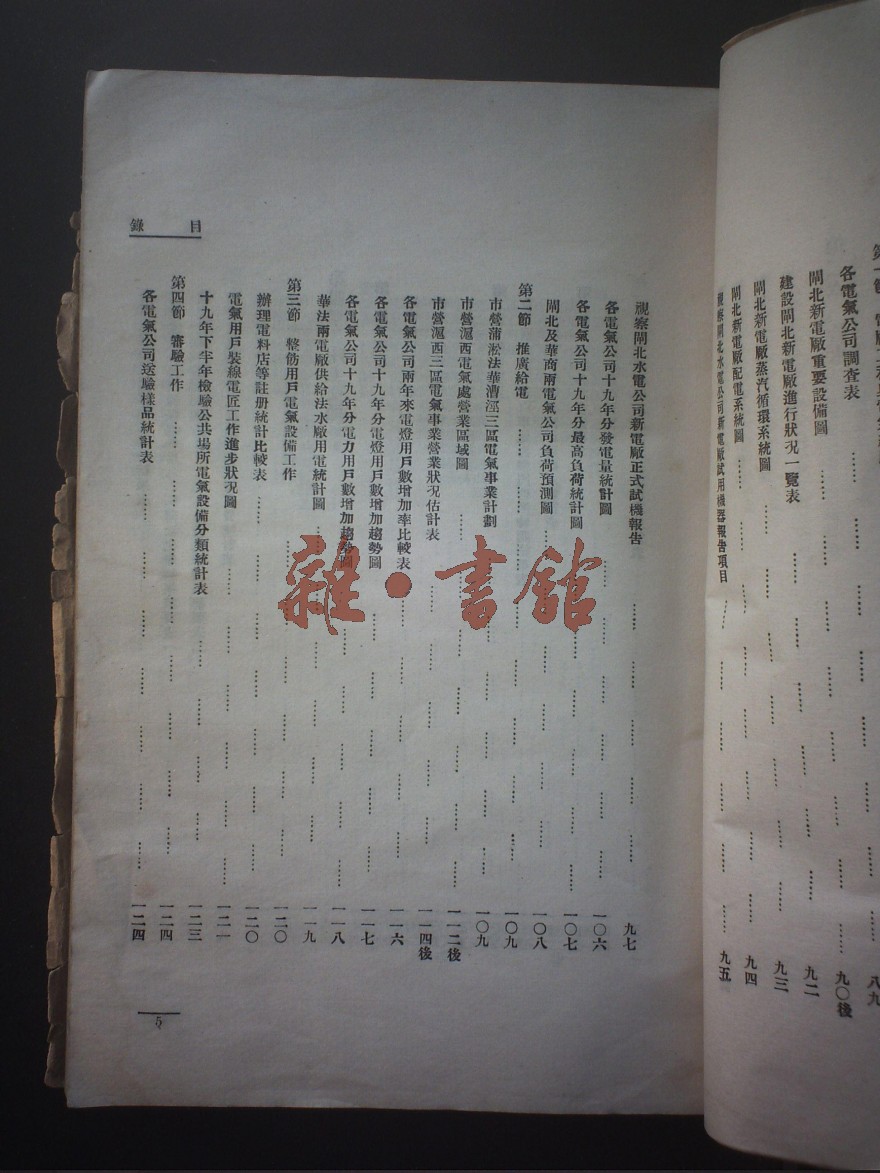 第一節
八九
各電氣公司調查表……九〇後
閘北新電廠重要設備圖……九二
建設閘北新電廠進行狀況一覽表……九三
閘北新電廠蒸汽循環系統圖……九四
閘北新電廠配電系統圖……九五
視察閘北水電公司新電廠試用機器報告項目
目錄
視察閘北水電公司新電廠正式試機報告……九七
各電氣公司十九年分發電量統計圖……一〇六
各電氣公司十九年分最高負荷統計圖……一〇七
閘北及華商兩電氣公司負荷預測圖……一〇八
第二節 推廣給電……一〇九
市營蒲淞法華漕涇三區電氣事業計劃……一〇九
市營滬西電氣處營業區域圖……一一二後
市營滬西三區電氣事業營業狀況估計表……一一四後
各電氣公司兩年來電燈用戶數增加率比較表……一一六
各電氣公司十九年分電燈用戶數增加趨勢圖……一一七
各電氣公司十九年分電力用戶數增加趨勢圖……一一八
華法兩電廠供給法水廠用電統計圖……一一九
第三節 整飭用戶電氣設備工作……一二〇
辦理電料店等註册統計比較表……一二〇
電氣用戶裝線電匠工作進步狀況圖……一二一
十九年下半年檢驗公共場所電氣設備分類統計表……一二三
第四節 審驗工作……一二四
各電氣公司送驗樣品統計表……一二四
5
雜·書館